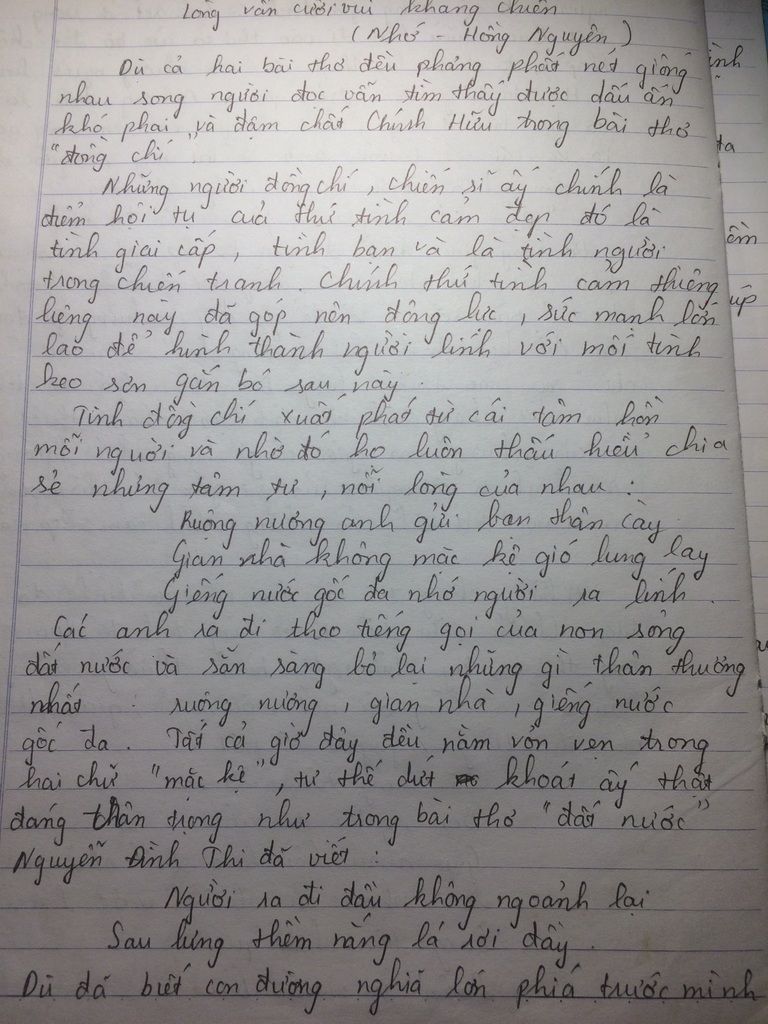 Lòng vẫn cười vui kháng chiến
(Nhớ - Hồng Nguyên)
Dù cả hai bài thơ đều phảng phất nét giống
nhau song người đọc vẫn tìm thấy được dấu ấn
khó phai và đậm chất Chính Hữu trong bài thơ
"đồng chí".
Những người đồng chí, chiến sĩ ấy chính là
điểm hội tụ của thứ tình cảm đẹp đó là
tình giai cấp, tình bạn và là tình người
trong chiến tranh. Chính thứ tình cảm thiêng
liêng này đã góp nên động lực, sức mạnh lớn
lao để hình thành người lính với mối tình
keo sơn gắn bó sau này.
Tình đồng chí xuất phát từ cái tâm hồn
mỗi người và nhờ đó họ luôn thấu hiểu chia
sẻ những tâm tư, nỗi lòng của nhau:
Ruộng nương anh gửi bạn thân cày
Gian nhà không mặc kệ gió lung lay
Giếng nước gốc đa nhớ người ra lính.
Các anh ra đi theo tiếng gọi của non sông
đất nước và sẵn sàng bỏ lại những gì thân thương
nhất: ruộng nương, gian nhà, giếng nước
gốc đa. Tất cả giờ đây đều nằm vỏn vẹn trong
hai chữ "mặc kệ", tư thế dứt khoát ấy thật
đáng trân trọng như trong bài thơ "đất nước"
Nguyễn Đình Thi đã viết:
Người ra đi đầu không ngoảnh lại
Sau lưng thềm nắng lá rơi đầy.
Dù đã biết con đường nghĩa lớn phía trước mình